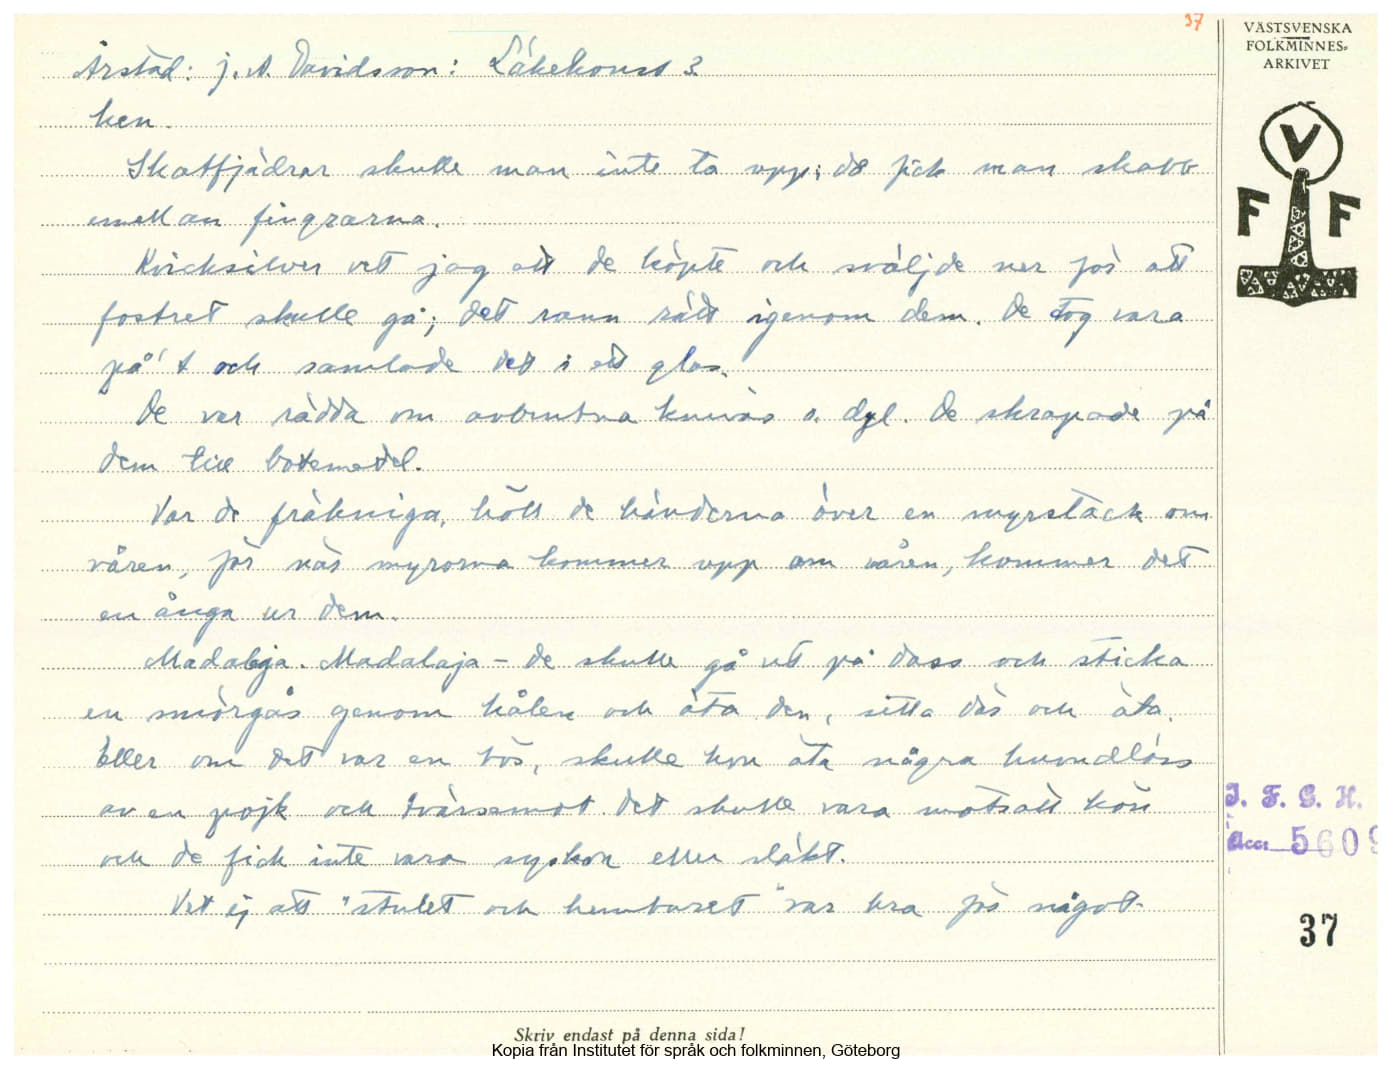 37
VÄSTSVENSKA
FOLKMINNES-
ARKIVET
V
F F
Årstad: J. A. Davidsson: Läkekonst 3.
ken.
Skatfjädrar skulle man inte ta upp; då fick man skabb
emellan fingrarna.
Kvicksilver vet jag att de köpte och sväljde ner för att
fostret skulle gå; det rann rätt igenom dem. De tog vara
på't och samlade det i ett glas.
De var rädda om avbrutna knivar o. dyl. De skrapade på
dem till botemedel.
Var de fräkniga, höll de händerna över en myrstack om
våren, för när myrorna kommer upp om våren, kommer det
en ånga ur dem.
Madaleja. Madalaja – de skulle gå ut på dass och sticka
en smörgås genom hålen och äta den, sitta där och äta.
Eller om det var en tös, skulle hon äta några huvudlöss
av en pojk och tvärsemot. Det skulle vara motsatt kön
och de fick inte vara syskon eller släkt.
Vet ej att "stulet och hembaret" var bra för något.
I. F. G. H.
Acc: 5609
37
Skriv endast på denna sida!
Kopia från Institutet för språk och folkminnen, Göteborg